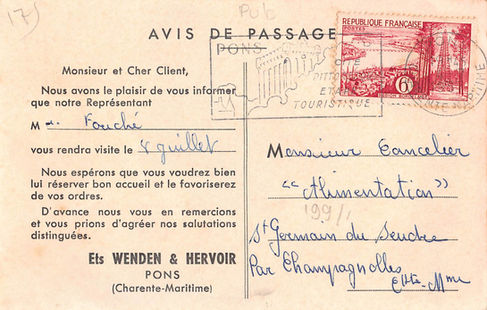 175
Pub
AVIS DE PASSAGE
PONS
Monsieur et Cher Client,
Nous avons le plaisir de vous informer
que notre Représentant
M Fouché
vous rendra visite le 8 juillet
Nous espérons que vous voudrez bien
lui réserver bon accueil et le favoriserez
de vos ordres.
D'avance nous vous en remercions
et vous prions d'agréer nos salutations
distinguées.
Ets WENDEN & HERVOIR
PONS
(Charente-Maritime)
REPUBLIQUE FRANÇAISE
POSTES
6F
ETAPE
TOURISTIQUE
MARITIME
Monsieur Tancelier
"Alimentation"
199/1
St Germain du Seudre
Par Champagnolles
Chte Mme